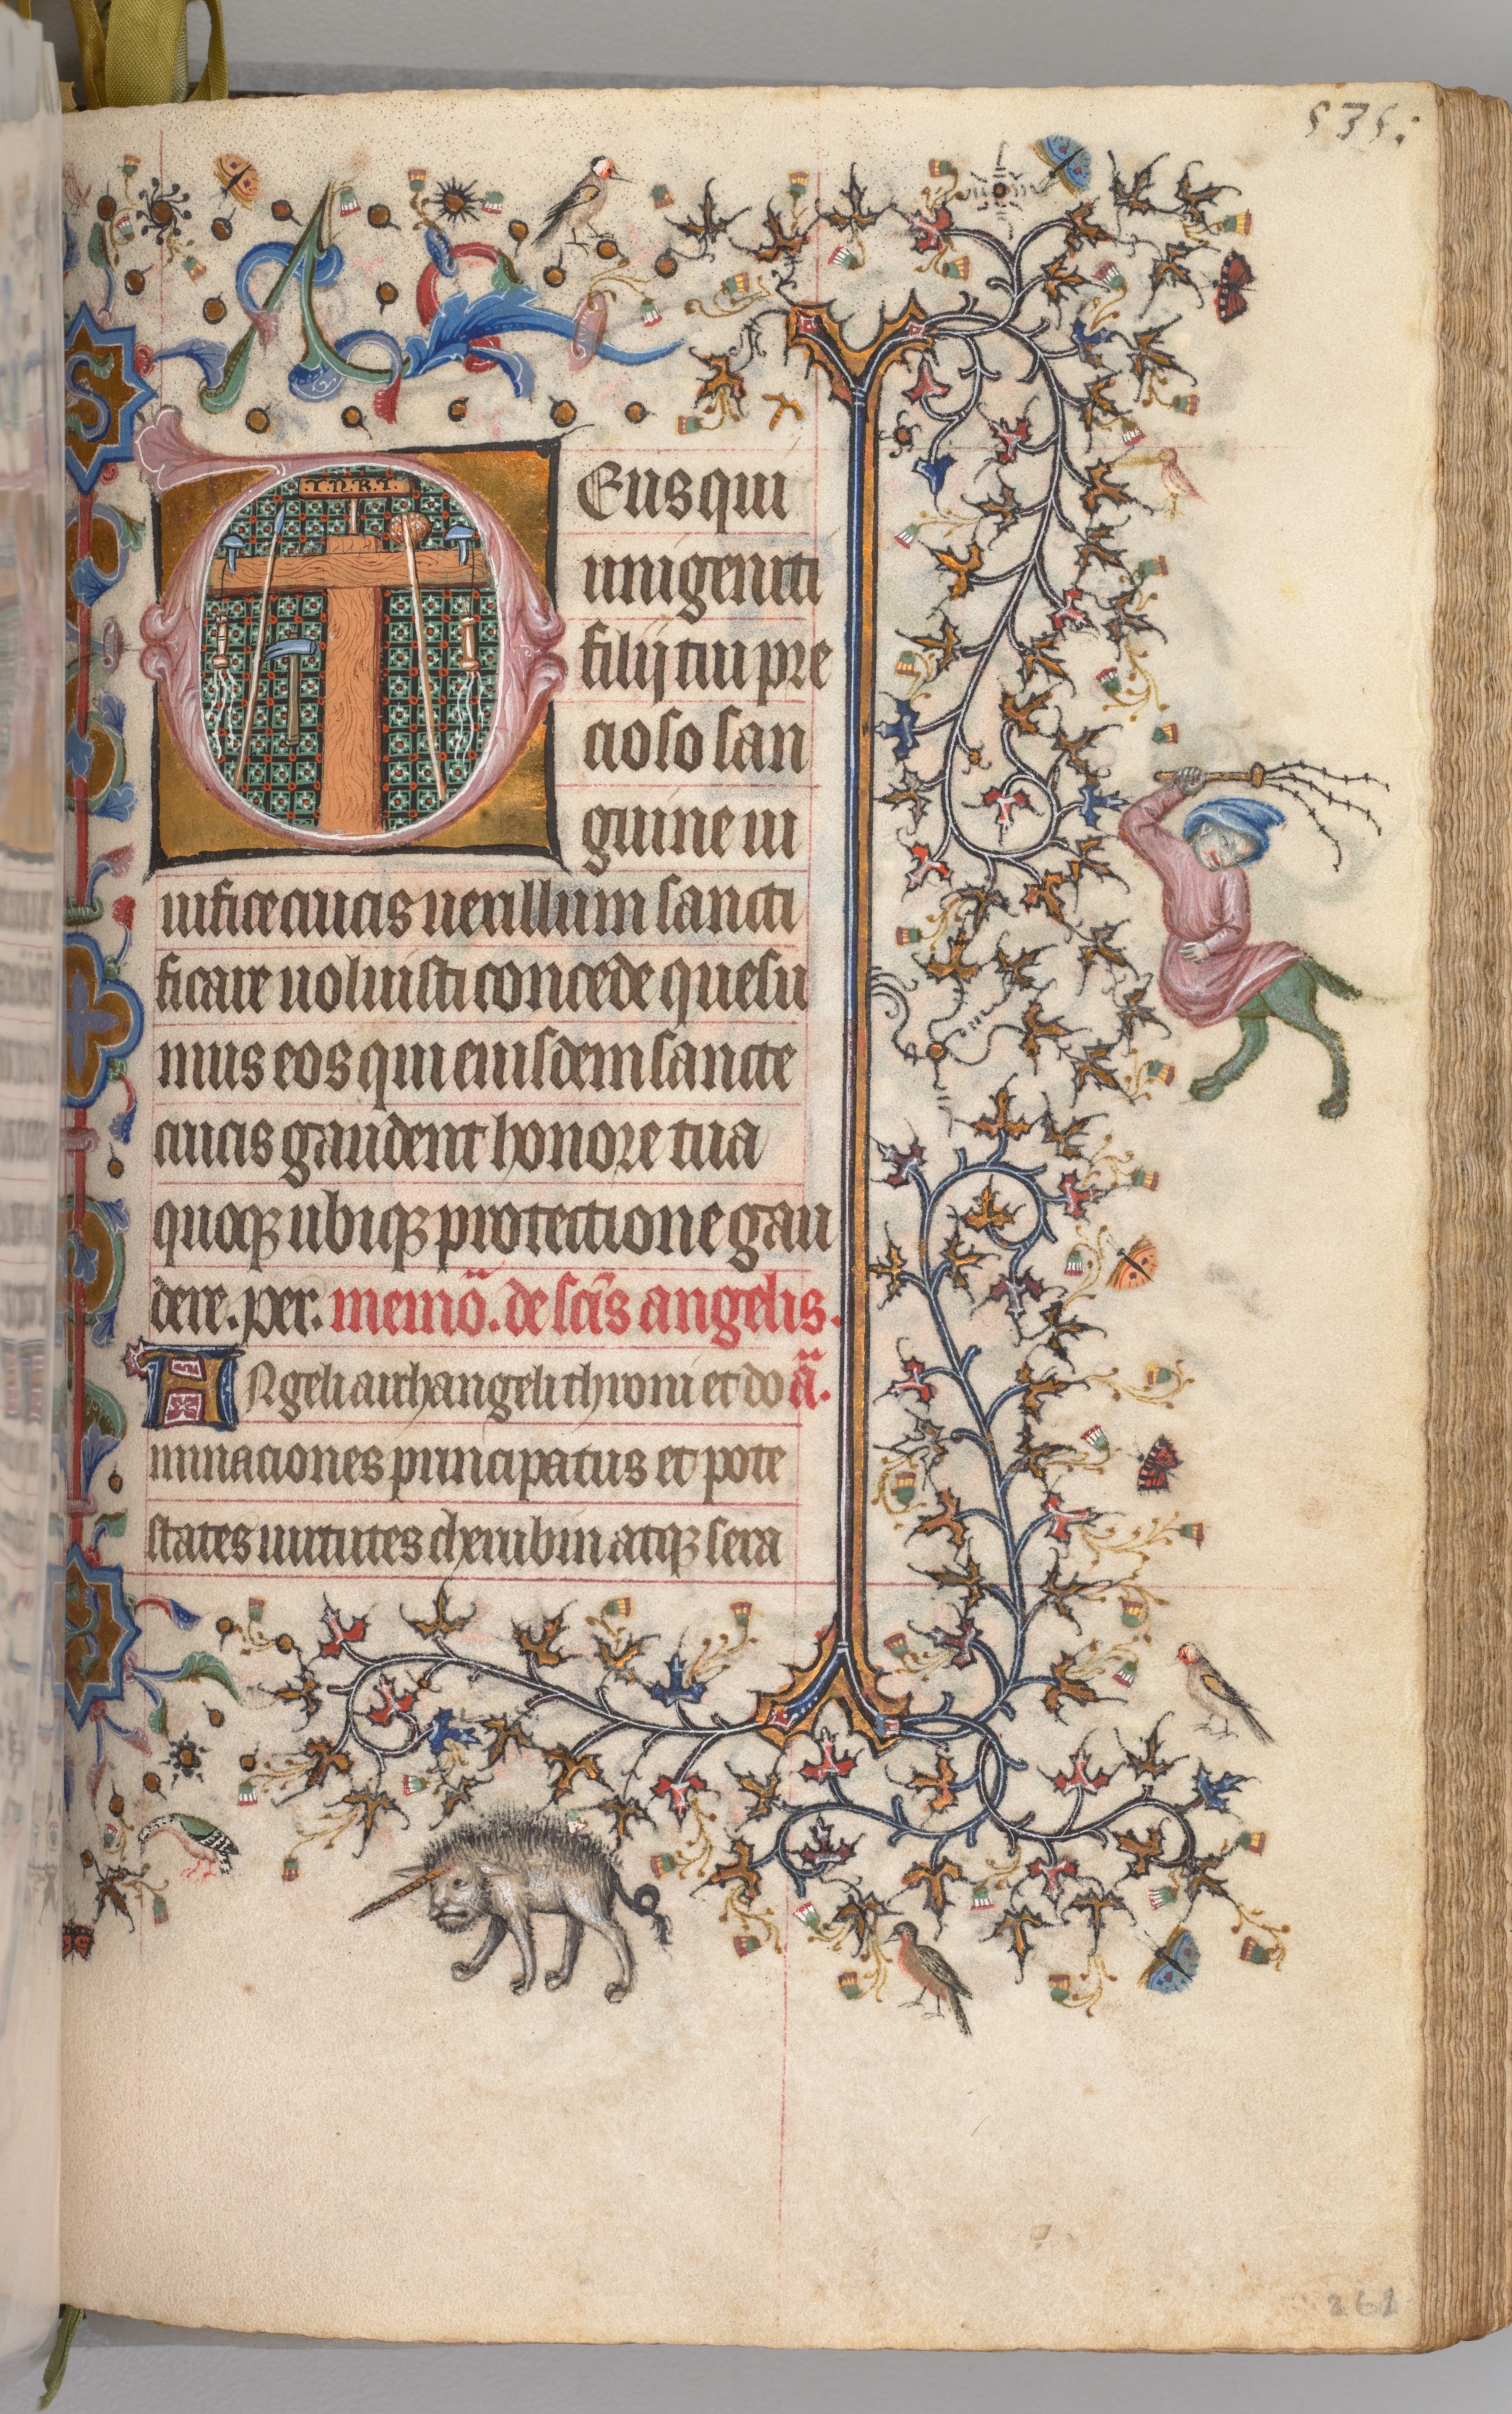 535:
I.N.R.I.
Eus qui
unigeniti
filij tui pre
cioso san
guine ui
uifice crucis uexillum sancti
ficare uoluisti concede quesu
mus eos qui eiusdem sancte
crucis gaudent honore tua
quoqꝫ ubiqꝫ protectione gau
dere. per. memō. de scīs angelis.
ANgeli archangeli throni et do ā.
minaciones principatus et pote
states uirtutes cherubin atqꝫ sera
261